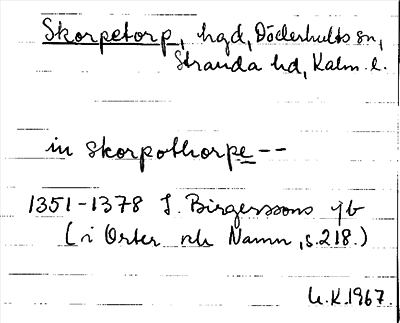 Skorpetorp, hgd, Döderhults sn,
Stranda hd, Kalm. l.
in skorpothorpe --
1351-1378 J. Birgerssons jb
(i Orter och Namn, s. 218.)
K.1967.